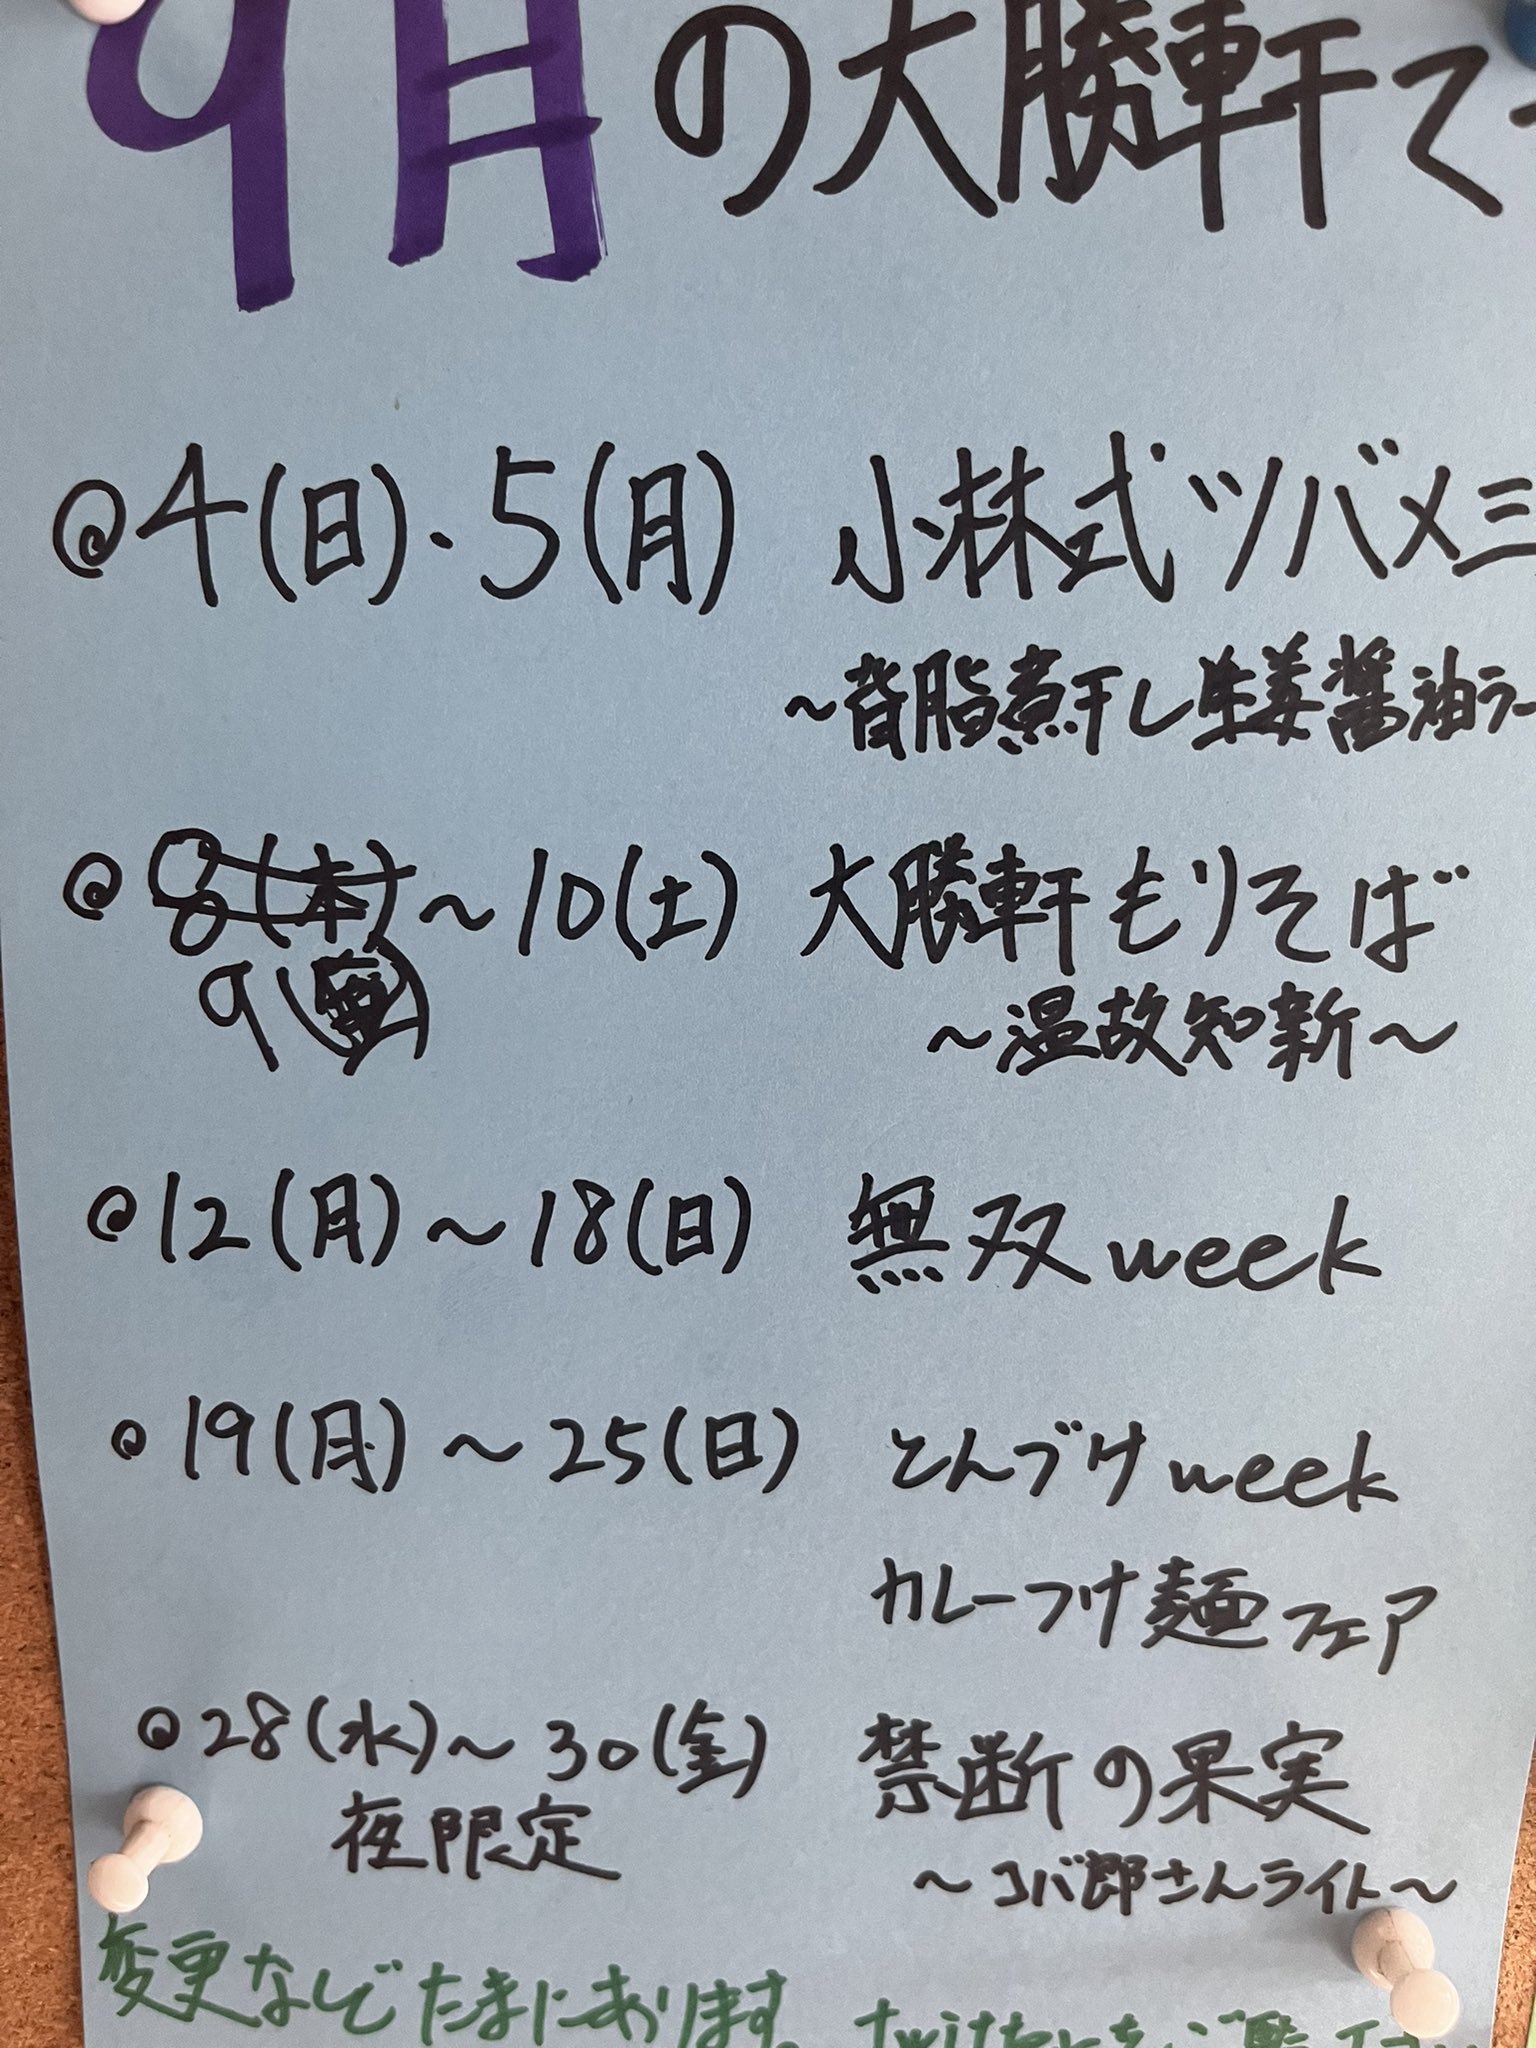 9月の大勝軒で
@4(日)・5(月) 小林式ツバメ三
～背脂煮干し生姜醤油ラー
@8(木)～10(土) 大勝軒もりそば
9(金) ～温故知新～
@12(月)～18(日) 無双week
@19(月)～25(日) とんづけweek
カレーつけ麺フェア
@28(水)～30(金) 禁断の果実
夜限定 ～コバ郎さんライト～
変更などたまにあります。twitter